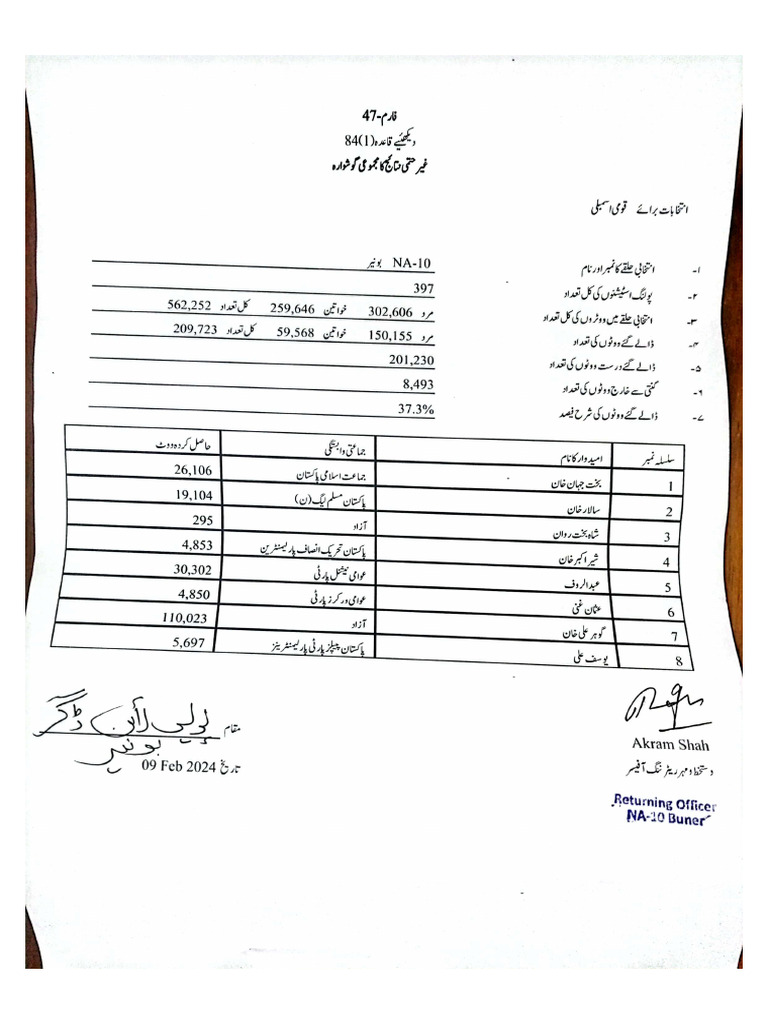 فارم-47
دیکھئیے قاعدہ (1)84
غیر حتمی نتائج کا مجموعی گوشوارہ
انتخابات برائے قومی اسمبلی
۱- انتخابی حلقے کا نمبر اور نام NA-10 بونیر
۲- پولنگ اسٹیشنوں کی کل تعداد 397
۳- انتخابی حلقے میں ووٹروں کی کل تعداد مرد 302,606 خواتین 259,646 کل تعداد 562,252
۴- ڈالے گئے ووٹوں کی تعداد مرد 150,155 خواتین 59,568 کل تعداد 209,723
۵- ڈالے گئے درست ووٹوں کی تعداد 201,230
۶- گنتی سے خارج ووٹوں کی تعداد 8,493
۷- ڈالے گئے ووٹوں کی شرح فیصد 37.3%
سلسلہ نمبر امیدوار کا نام جماعتی وابستگی حاصل کردہ ووٹ
1 بخت جہان خان جماعت اسلامی پاکستان 26,106
2 سالار خان پاکستان مسلم لیگ (ن) 19,104
3 شاہ بخت روان آزاد 295
4 شیر اکبر خان پاکستان تحریک انصاف پارلیمنٹیرین 4,853
5 عبدالروف عوامی نیشنل پارٹی 30,302
6 عثمان غنی عوامی ورکرز پارٹی 4,850
7 گوہر علی خان آزاد 110,023
8 یوسف علی پاکستان پیپلز پارٹی پارلیمنٹیرینز 5,697
Akram Shah
دستخط و مہر ریٹرننگ آفیسر
Returning Officer
NA-10 Buner
مقام ڈگر
بونیر
تاریخ 09 Feb 2024